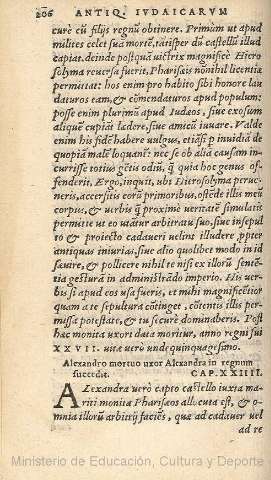 206 ANTIQ. IVDAICARVM
curē cū filijs regnū obtinere. Primùm ut apud
milites celet suā mortē, tatisper dū castellū illud
capiat. deinde postquā uictrix magnificè Hiero
solyma reuersa fueris, Pharisæis nōnihil licentiæ
permittat: hos enim pro habito sibi honore lau
daturos eam, & cōmendaturos apud populum:
posse enim plurimū apud Iudæos, siue exosum
aliquē cupiāt lædere, siue amicū iuuare. Valde
enim his fidē habere uulgus, etiāsi p inuidiā de
quopiā malè loquant: nec se ob aliā causam in-
currisse totius gētis odiū, q̄ quia hoc genus of-
fenderit. Ergo, inquit, ubi Hierosolyma perue-
neris, accersitis eorū primoribus, ostēde illis meū
corpus, & uerbis q̄ proximè ueritatē simulatis
permitte ut eo utātur arbitratu suo, siue insepul
to & proiecto cadaueri uelint illudere ppter
antiquas iniurias, siue alio quolibet modo in id
sæuire, & pollicere nihil te nisi ex illorū senten-
tia gesturā in administrādo imperio. His uer-
bis si apud eos usa fueris, et mihi magnificētior
quam a te sepultura cōtinget, cōtentis illis per-
missa potestate, & tu securè dominaberis. Post
hæc monita uxori data moritur, anno regni sui
XXVII. uitæ uerò undequinquagesimo.
Alexandro mortuo uxor Alexandra in regnum
succedit. CAP. XXIIII.
ALexandra uerò capto castello iuxta ma-
riti monita Pharisæos allocuta est, & o-
mnia illorū arbitrij faciēs, quæ ad cadauer uel
ad re
Ministerio de Educación, Cultura y Deporte